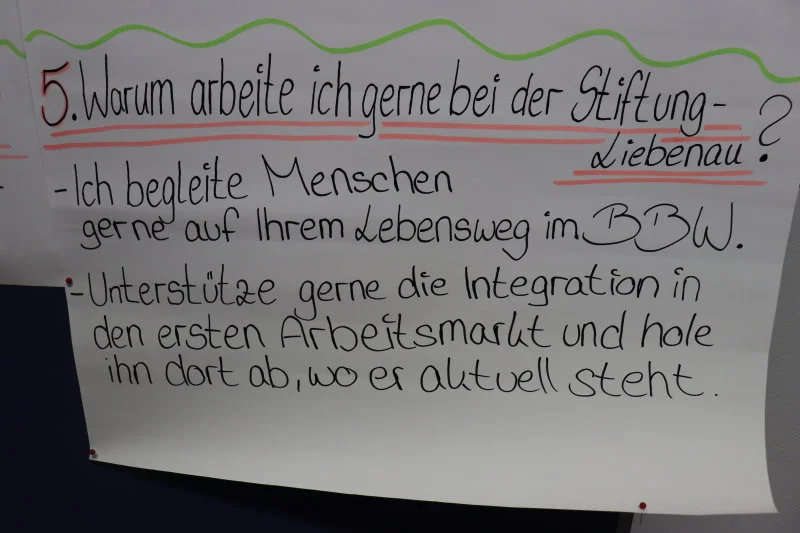 5. Warum arbeite ich gerne bei der Stiftung-
Liebenau?
- Ich begleite Menschen
gerne auf Ihrem Lebensweg im BBW.
- Unterstütze gerne die Integration in
den ersten Arbeitsmarkt und hole
ihn dort ab, wo er aktuell steht.